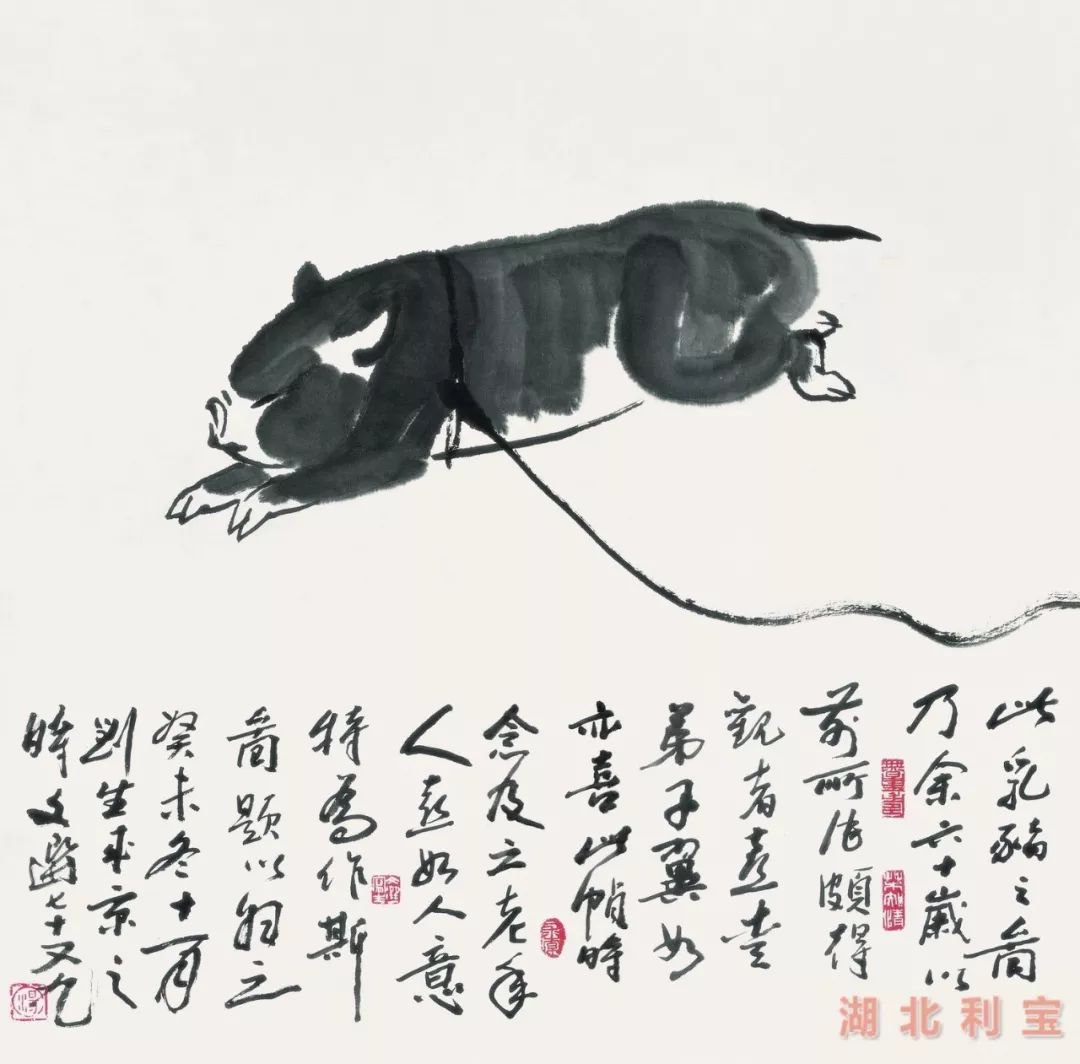 此乳豬之圖
乃余六十歲以
前所作頗得
觀者喜愛
弟子翼如
亦喜此幀時
念及老年
人喜如人意
特為作斯
圖題以之
癸未冬十一月
劉生來京之
時文選七十又九
湖北利宝